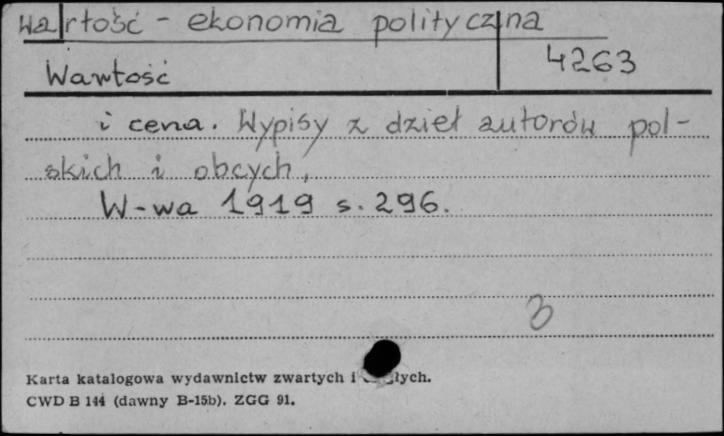 Wartość - ekonomia polityczna
Wartość 4263
i cena. Wypisy z dzieł autorów pol-
skich i obcych,
W-wa 1919 s. 296.
3
Karta katalogowa wydawnictw zwartych i
CWD B 144 (dawny B-15b). ZGG 91.